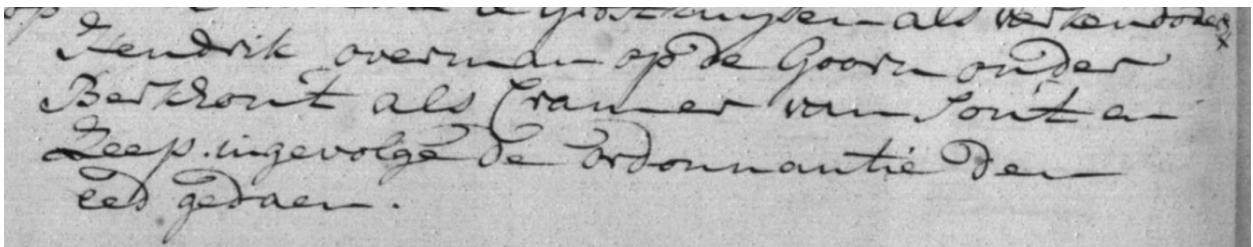 op de Grosthuysen als verkendoder
Hendrik overman op de Goorn onder
Berkhout als Cramer van Sout en
Zeep. ingevolge de ordonnantie den
eed gedaen.